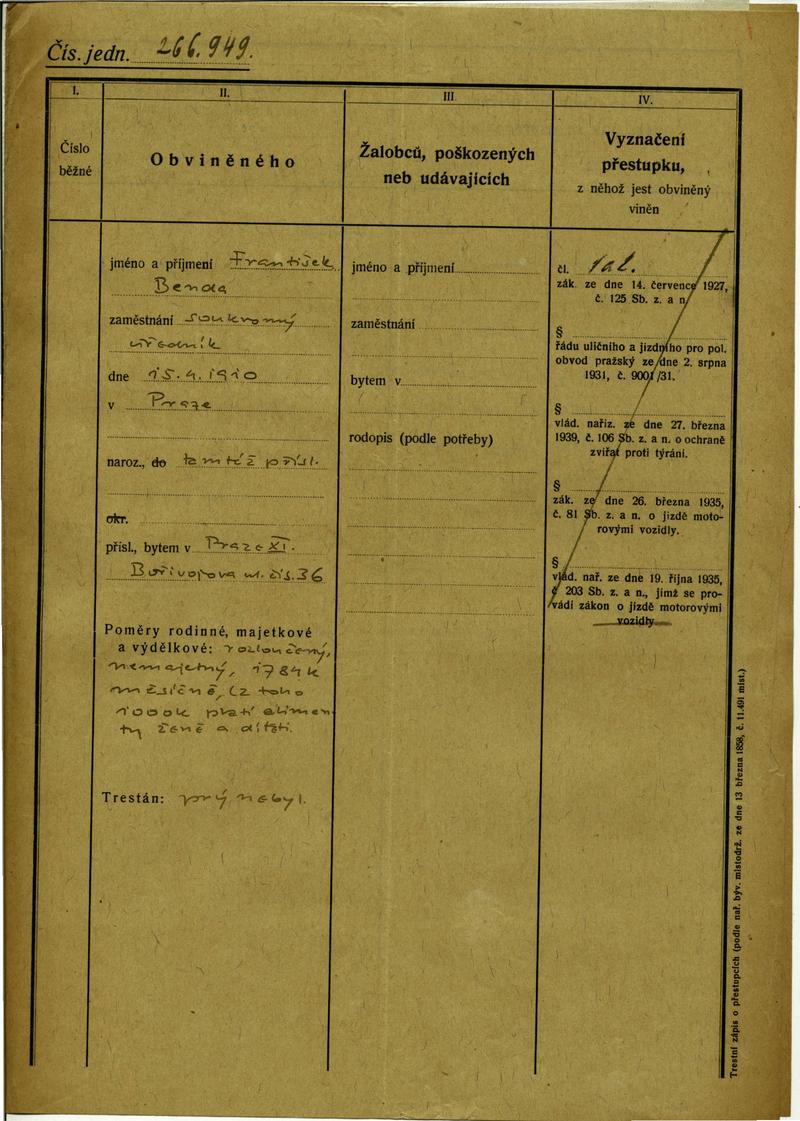 Čís. jedn. 266.949.
I.
Číslo
běžné
II.
Obviněného
III.
Žalobců, poškozených
neb udávajících
IV.
Vyznačení
přestupku,
z něhož jest obviněný
viněn
jméno a příjmení František
Benda
zaměstnání soukromný
úředník
dne 15.4.1910
v Praze
naroz., do tamtéž přísl.
okr.
přísl., bytem v Praze XI.
Bořivojova ul. čís. 36
Poměry rodinné, majetkové
a výdělkové: rozloučený,
nemajetný, 1784 k
měsíčně, z toho
1000k platí alimen
ty ženě a dítěti.
Trestán: prý nebyl.
jméno a příjmení
zaměstnání
bytem v
rodopis (podle potřeby)
čl.
zák. ze dne 14. července 1927,
č. 125 Sb. z. a n.
§
řádu uličního a jízdního pro pol.
obvod pražský ze dne 2. srpna
1931, č. 9001/31.
§
vlád. nařiz. ze dne 27. března
1939, č. 106 Sb. z. a n. o ochraně
zvířat proti týrání.
§
zák. ze dne 26. března 1935,
č. 81 Sb. z. a n. o jízdě moto-
rovými vozidly.
§
vlád. nař. ze dne 19. října 1935,
č. 203 Sb. z. a n., jímž se pro-
vádí zákon o jízdě motorovými
vozidly
Trestní zápis o přestupcích (podle nař. býv. místodrž. ze dne 13 března 1858, č. 11.491 míst.)